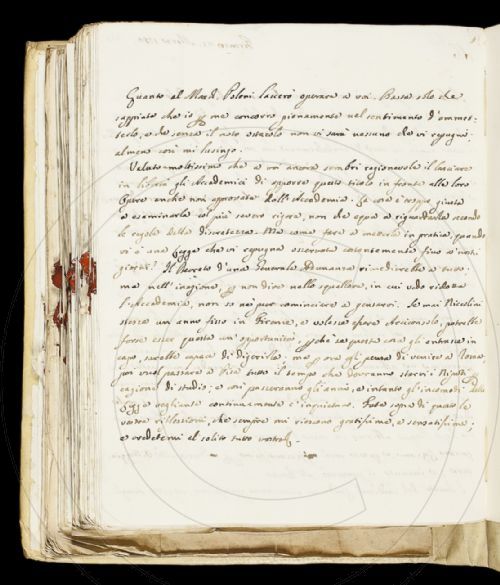 Quanto al March. Poloni lascerò operare a voi. Basta solo che
sappiate che io p me concorro pienamente nel sentimento d'ammet-
terlo, e che senza il noto ostacolo non vi sarà nessuno che vi repugni
almen così mi lusingo.
Veduto moltissimo che a voi ancora sembri ragionevole il lasciare
in libertà gli Accademici di apporre questo titolo in fronte alle loro
Opere anche non approvate dall' Accademia. La cosa è troppo giusta
a esaminarla col più severo rigore, non che a riguardarla secondo
le regole della discretezza. Ma come fare a metterla in pratica, quando
vi è una Legge che vi repugna osservata costantemente fino a nostri
giorni? Il Decreto d'una Generale Adunanza rimedierebbe a tutto;
ma nell' inazione, p non dire nello squallore, in cui vedo ridotta
l'Accademia, non so nei pur cominciare a pensarvi. Se mai Niccolini
stesse un anno fisso in Firenze, e volesse essere Arciconsolo, potrebbe
forse esser questa un' opportunità, perche se questa cosa gli entrasse in
capo, sarebbe capace di digerirla. ma p ora egli pensa di venire a Roma,
poi vuol passare a Pisa tutto il tempo che dovranno starvi i Nipoti
cagioni di studio; e così passeranno gli anni, e intanto gl' incomodi della
Legge vegliante continueranno a inquietare. Fate sopra di questo le
vostre riflessioni, che sempre mi riescono gratissime, e sensatissime;
e credetemi al solito tutto vostro